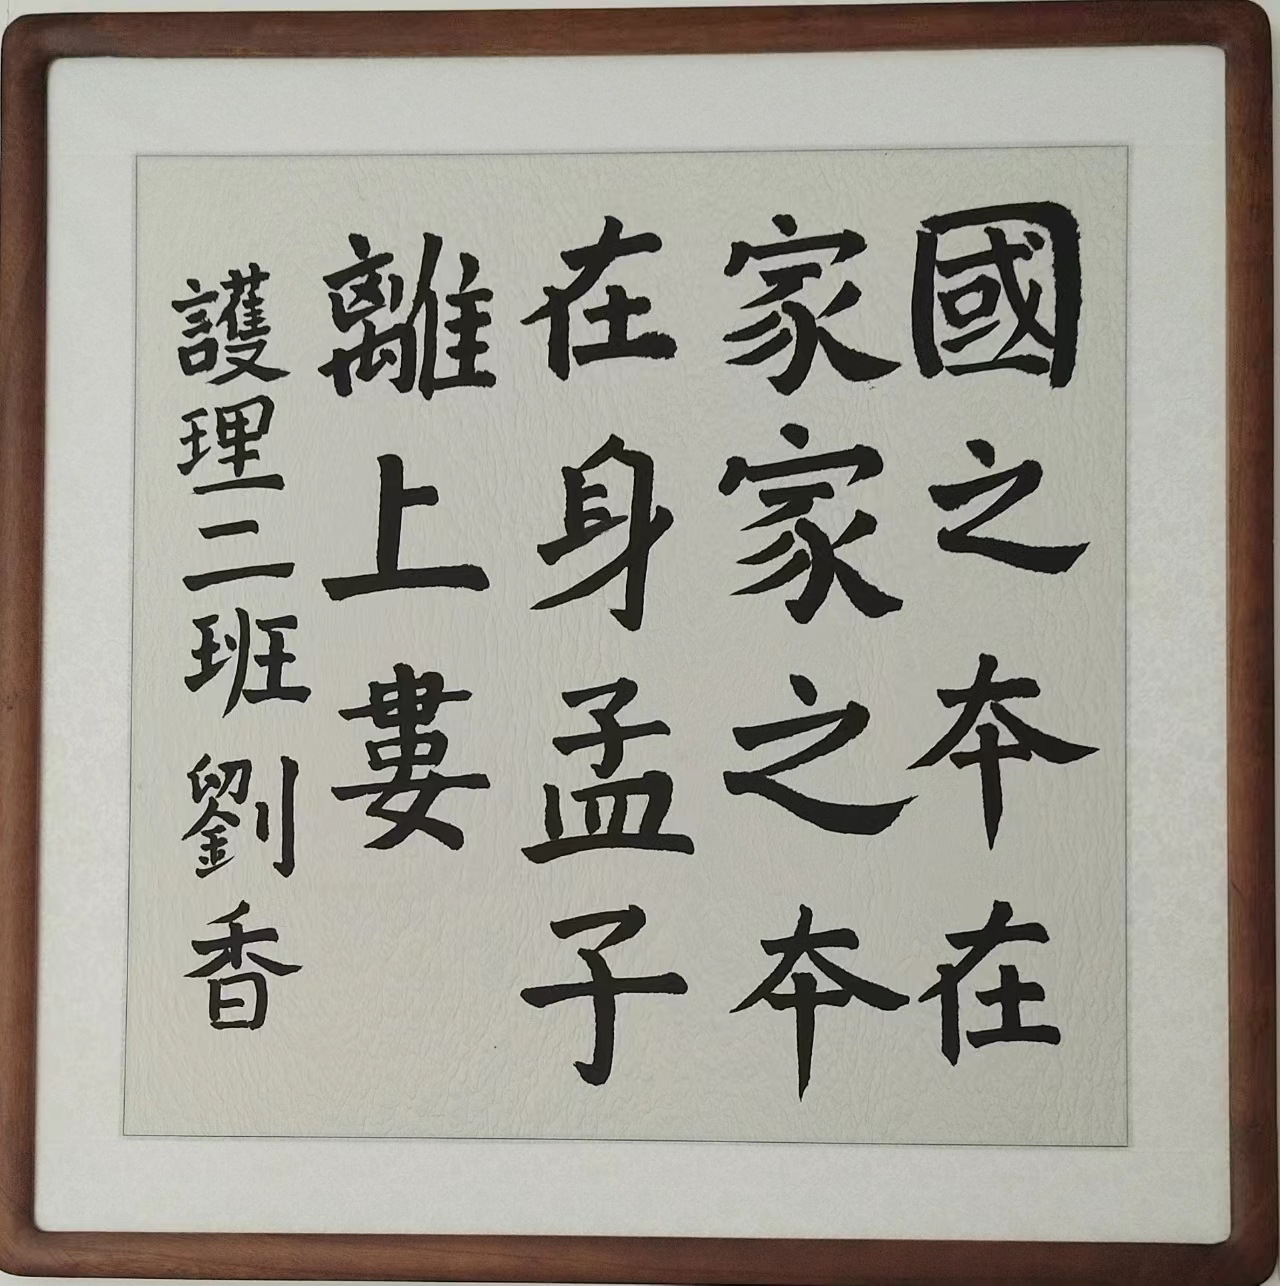 國之本在
家家之本
在身孟子
離上婁
護理三班劉香